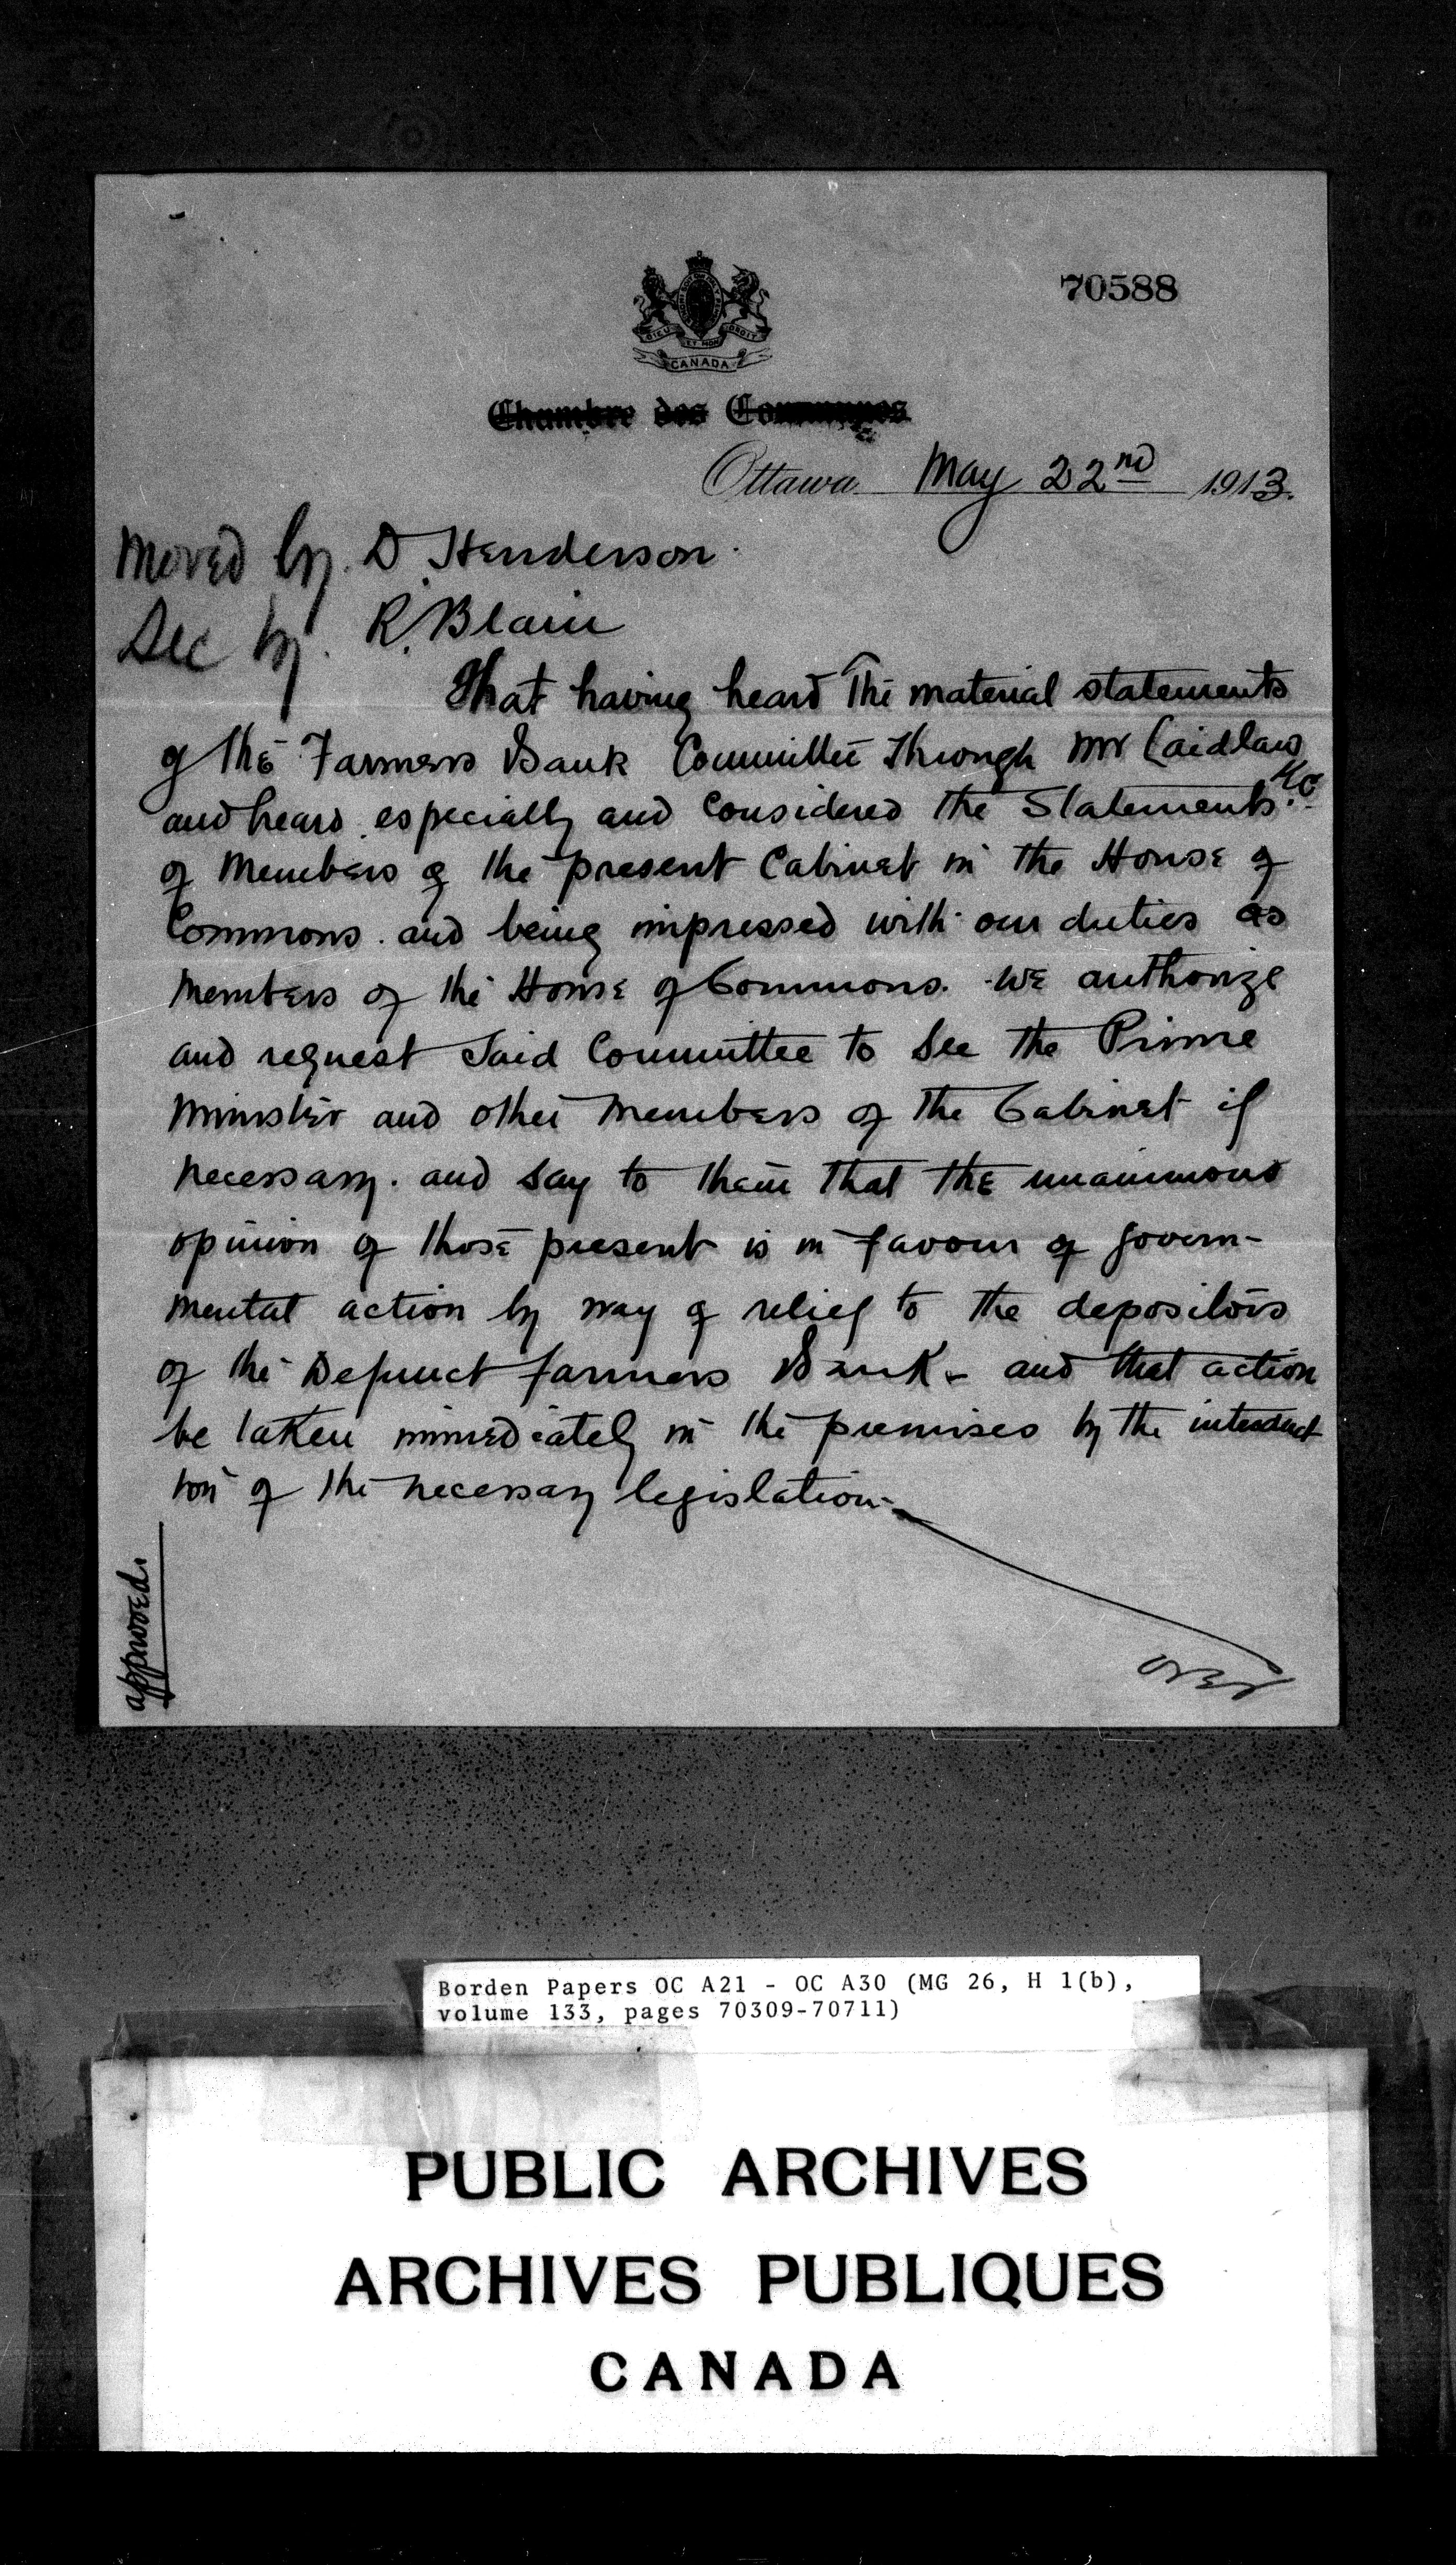 70588
DIEU ET MON DROIT
CANADA
Chambre des Communes
Ottawa May 22nd 1913.
Moved by. D. Henderson.
Sec by. R. Blain
That having heard The material statements
of the Farmers Bank Committee through Mr Laidlaw
K.C.
and heard especially and considered the Statements
of Members of the present Cabinet in the House of
Commons. and being impressed with our duties as
Members of the House of Commons. We authorize
and request said Committee to see the Prime
Minister and other members of the Cabinet if
necessary. and say to them that the unanimous
opinion of those present is in favour of govern-
mental action by way of relief to the depositors
of the Defunct farmers Bank - and that action
be taken immediately in the premises by the introduct
ion of the necessary legislation -
approved.
over
Borden Papers OC A21 - OC A30 (MG 26, H 1(b),
volume 133, pages 70309-70711)
PUBLIC ARCHIVES
ARCHIVES PUBLIQUES
CANADA